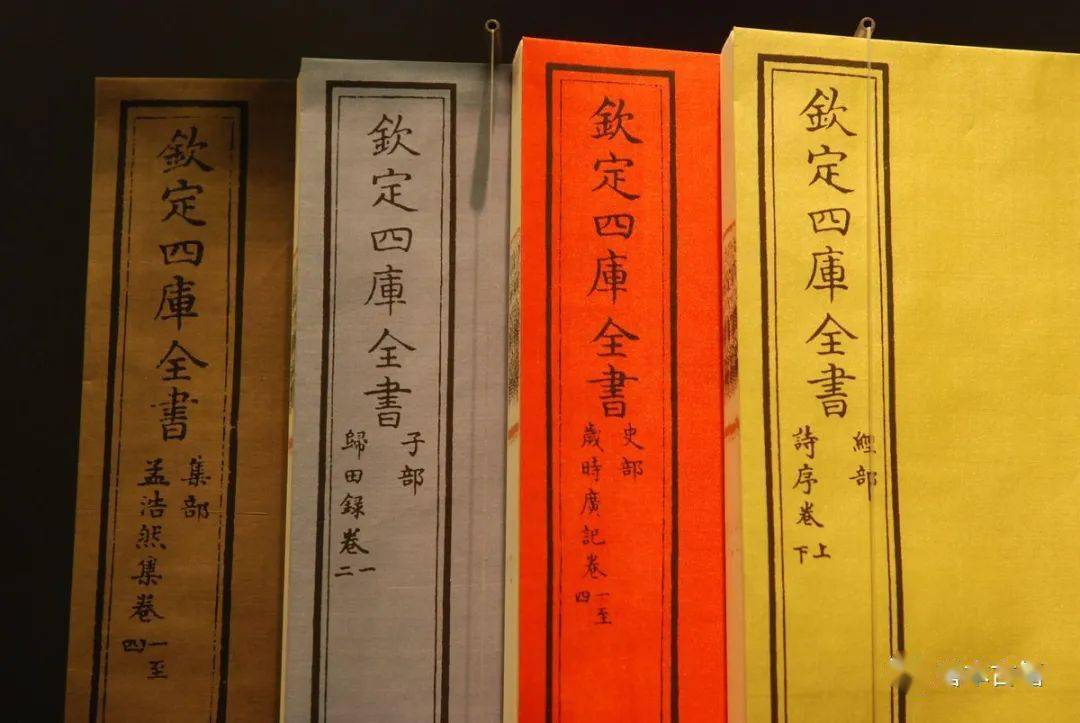 欽定四庫全書
經部
詩序卷上
下
欽定四庫全書
史部
歲時廣記卷一至
四
欽定四庫全書
子部
歸田録卷一
二
欽定四庫全書
集部
孟浩然集卷一至
四